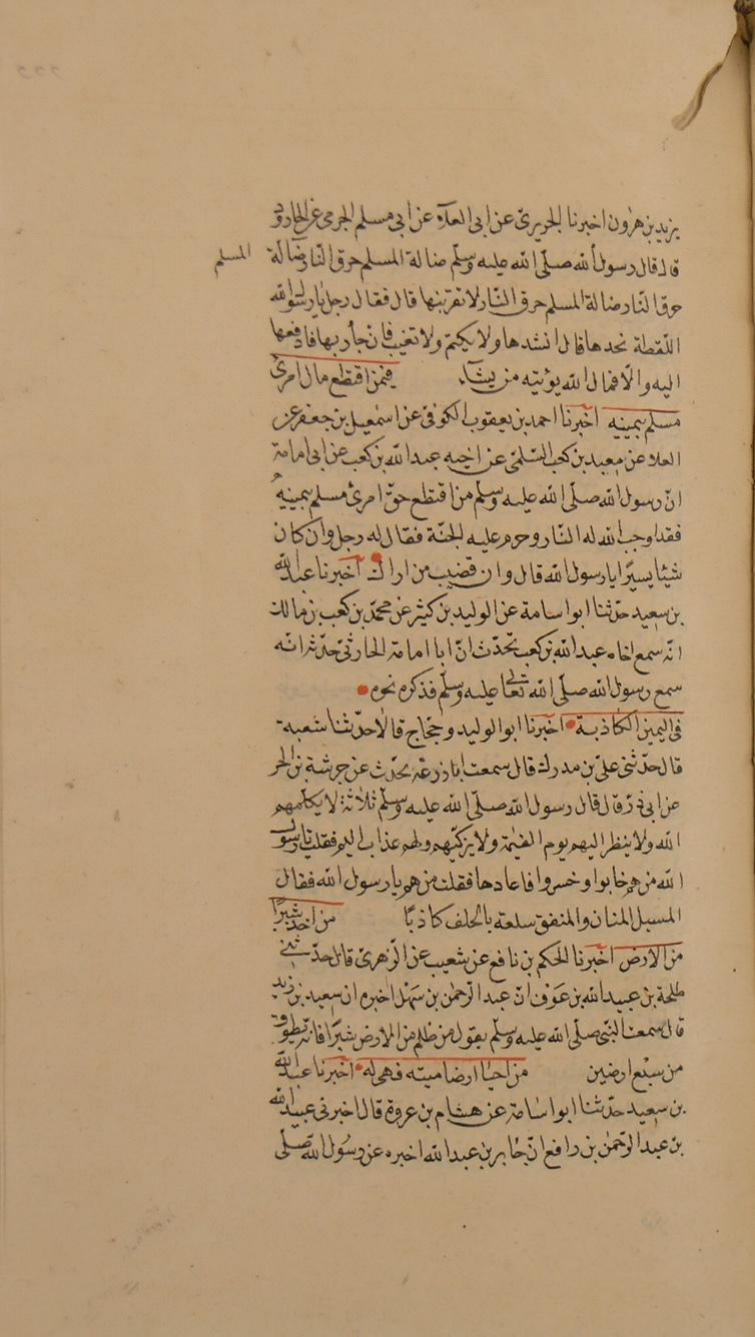 يزيد بن هرون اخبرنا الجريري عن ابى العلآء عن ابى مسلم الجرمى عن الجارود
قال قال رسول الله صلّى الله عليه وسلّم ضالة المسلم حرق النّار ضآلة
المسلم
حرق النّار ضالة المسلم حرق النّار لا تقربنها قال فقال رجل يا رسول الله
اللقطة نجدها قال انشدها ولا يكتم ولا تغيب فان جآء ربها فادفعها
اليه والّا فمال الله يؤتيه من يشآء فيمن اقتطع مال امرئ
مسلم بيمينه اخبرنا احمد بن يعقوب الكوفى عن اسمعيل بن جعفر عن
العلا عن معبد بن كعب السّلمى عن اخيه عبد الله بن كعب عن ابى امامة
انّ رسول الله صلّى الله عليه وسلّم من اقتطع حقّ امرئ مسلم بيمينه
فقد اوجب الله له النّار وحرم عليه الجنّة فقال له رجل وان كان
شيئا يسيرًا يا رسول الله قال وان قضيب من اراك اخبرنا عبد الله
بن سعيد حدّثنا ابو اسامة عن الوليد بن كثير عن محمّد بن كعب بن مالك
انّه سمع اخاه عبد الله بن كعب يحّدث انّ ابا امامة الحارثىّ حدّثه انّه
سمع رسول الله صلّى الله تعالى عليه وسلّم فذكره نحوه
فى اليمين الكاذبة اخبرنا ابو الوليد وحجّاج قالا حدّثنا شعبة
قال حدّثنى علىّ بن مدرك قال سمعت ابا زرعة يحدّث عن خرشة بن الحر
عن ابى ذرّ قال قال رسول الله صلّى الله عليه وسلّم ثلاثة لا يكلّمهم
الله ولا ينظر اليهم يوم القيمة ولا يزكّيهم ولهم عذاب اليم فقلت يا رسول
الله من هم خابوا وخسروا فاعادها فقلت من هم يا رسول الله فقال
المسبل المنان والمنفق سلعته بالحلف كاذبًا من اخذ شبرًا
من الارض اخبرنا الحكم بن نافع عن شعيب عن الزّهرىّ قال حدّثنى
طلحة بن عبيد الله بن عوف انّ عبد الرّحمن بن سهل اخبره ان سعيد بن زيد
قال سمعت النّبىّ صلّى الله عليه وسلّم يقول من ظلم من الارض شبرًا فانّه يطوقه
من سبع ارضين من احيا ارضا ميته فهى له اخبرنا عبد الله
بن سعيد حدّثنا ابو اسامة عن هشام بن عروة قال اخبرنى عبيد الله
بن عبد الرّحمن بن رافع انّ جابر بن عبد الله اخبره عن رسول الله صلّى